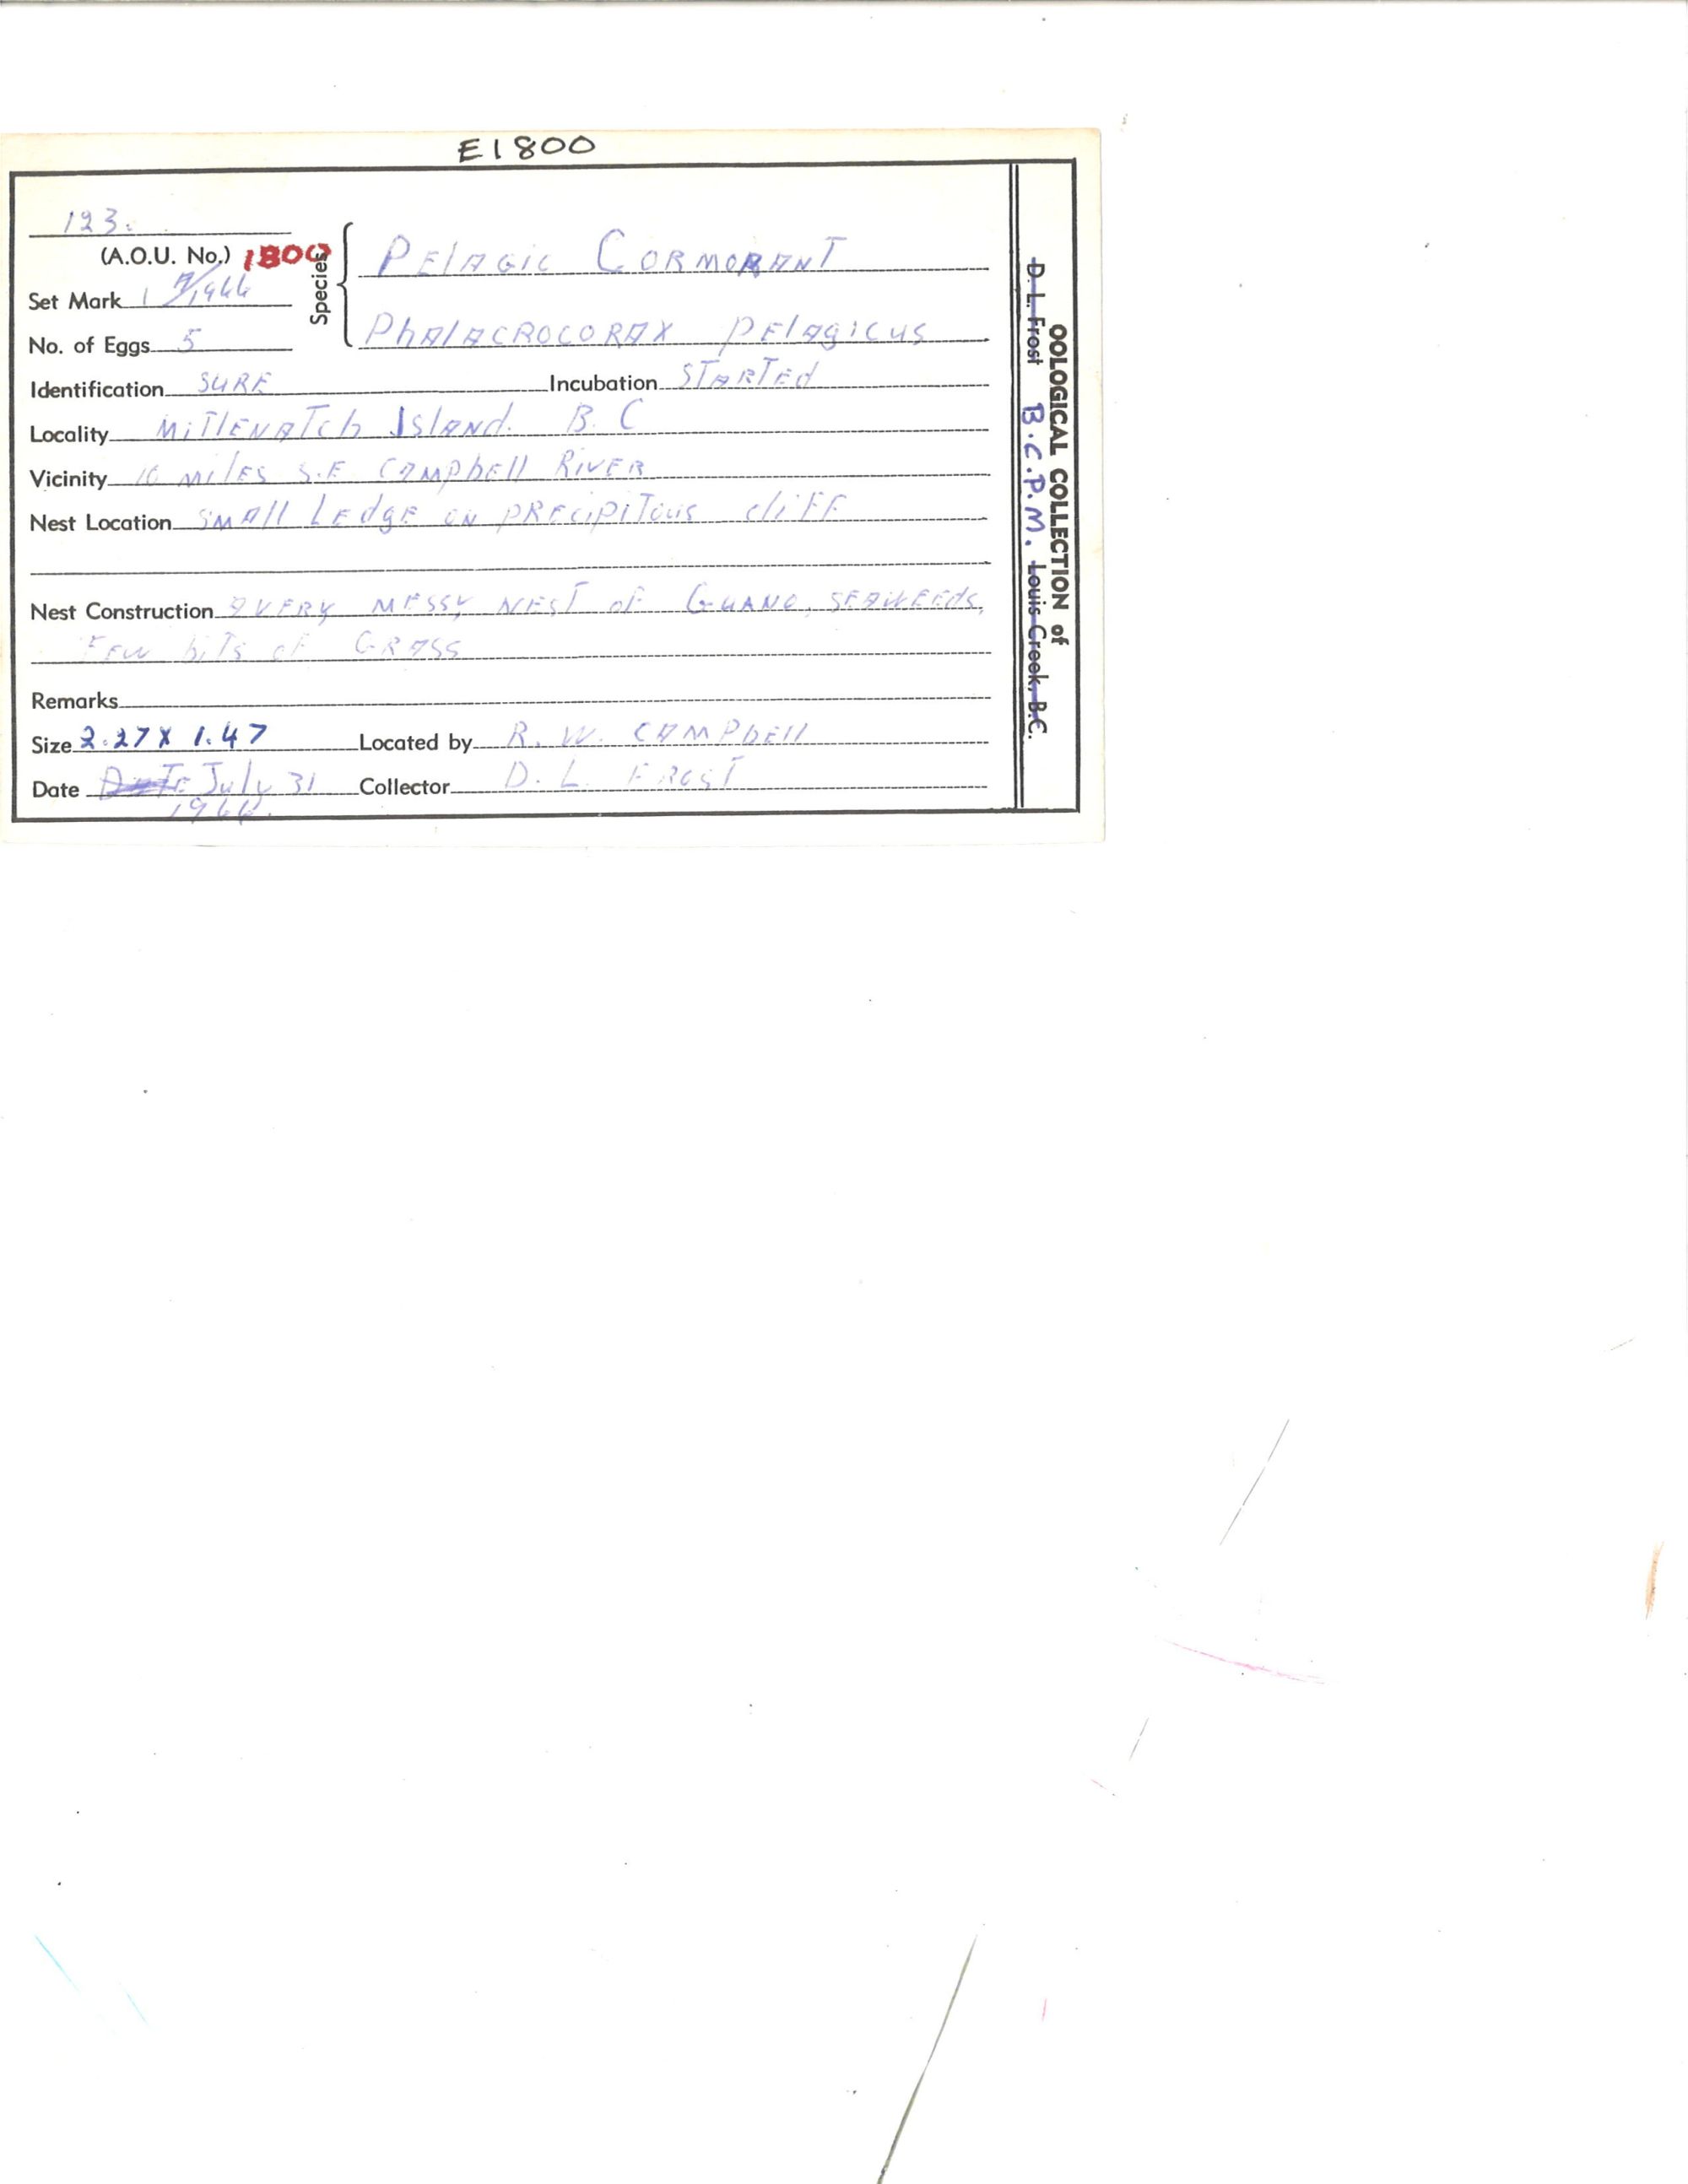 E1800
123.
(A.O.U. No.) 1800
Species
PELAGIC CORMORANT
Set Mark 1 /1966
PHALACROCORAX PELAGICUS
No. of Eggs 5
Identification SURE Incubation STARTED
Locality MITLENATCH ISLAND. B.C
Vicinity MILES S.E CAMPBELL RIVER
Nest Location SMALL LEDGE ON PRECIPITOUS CLIFF
Nest Construction A VERY MESSY NEST OF GUANO, SEAWEEDS,
FEW BITS OF GRASS
Remarks
Size 2.27 X 1.47 Located by R. W. CAMPBELL
Date July 31 Collector D. L. FROST
1966.
OOLOGICAL COLLECTION of
D. L. Frost B.C.P.M. Louis Creek, B.C.